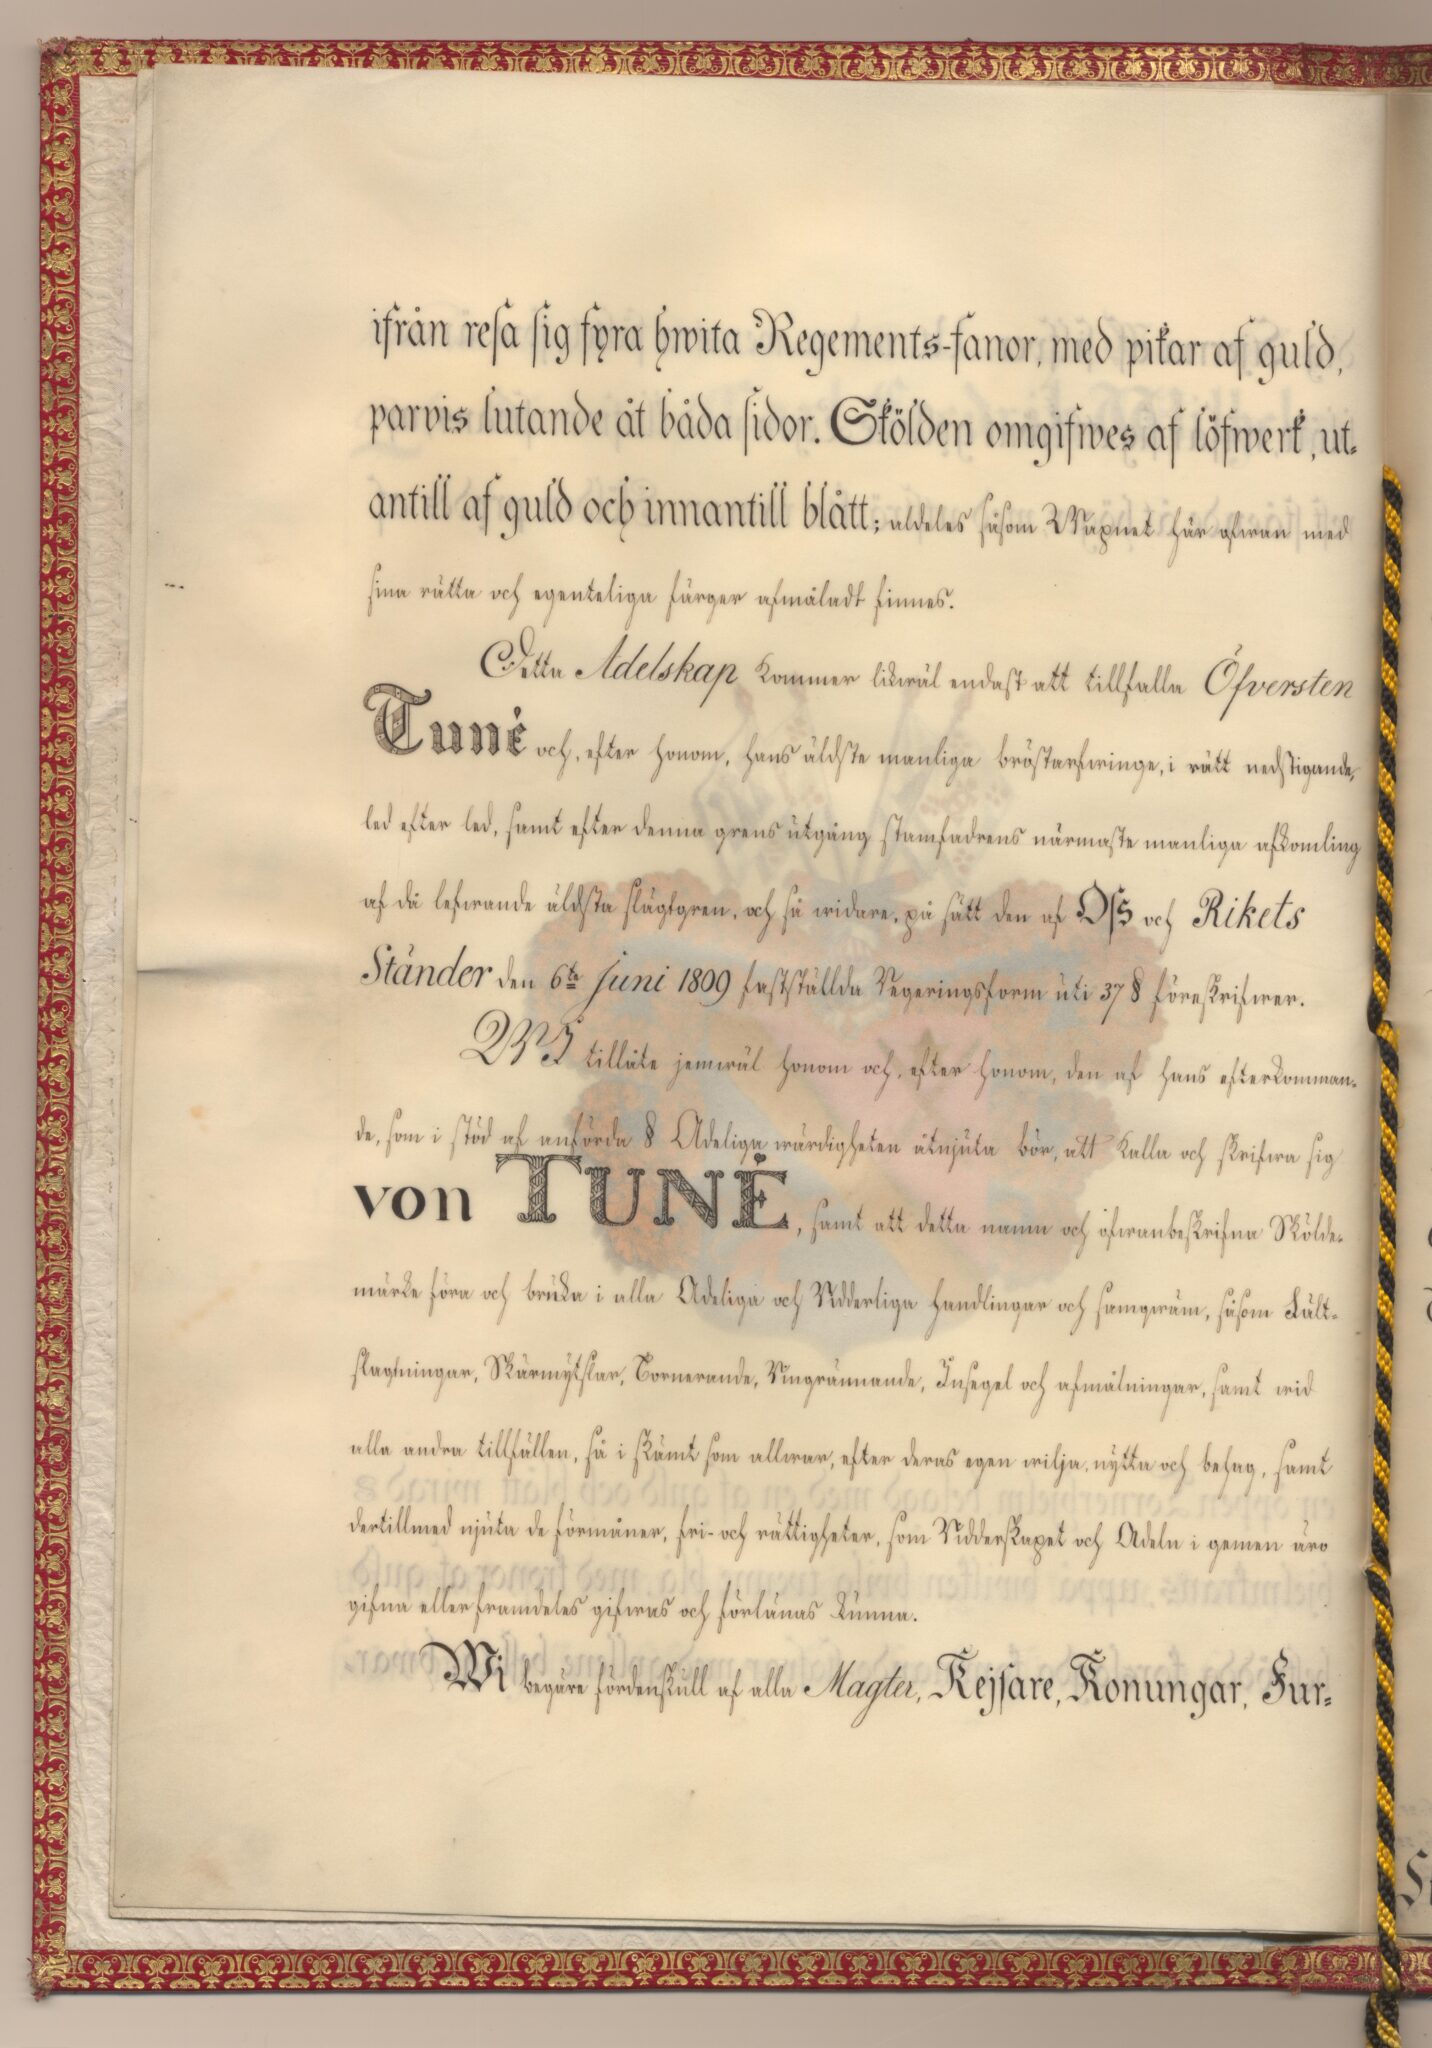 ifrån resa sig fyra hwita Regements-fanor, med pikar af guld,
parvis lutande åt båda sidor. Skölden omgifwes af löfwerk, ut-
antill af guld och innantill blått; aldeles såsom Wapnet här ofwan med
sina rätta och egenteliga färger afmåladt finnes.
Detta Adelskap kommer likwäl endast att tillfalla Öfversten
Tuné och, efter honom, hans äldste manliga bröstarfwinge, i rätt nedstigande,
led efter led, samt efter denna grens utgång stamfadrens närmaste manliga afkomling
af då lefwande äldsta slägtgren, och så widare, på sätt den af Oss och Rikets
Ständer den 6te Juni 1809 fastställda Regeringsform uti 37 § föreskrifwer.
WI tillåte jemwäl honom och, efter honom, den af hans efterkomman-
de, som i stöd af anförda § Adeliga wärdigheten åtnjuta bör, att kalla och skrifwa sig
von TUNÉ, samt att detta namn och ofwanbeskrifna Skölde-
märke föra och bruka i alla Adeliga och Ridderliga handlingar och samqwäm, såsom Fält-
slagtningar, Skärmytslar, Tornerande, Ringrännande, Insegel och afmålningar, samt wid
alla andra tillfällen, så i skämt som allwar, efter deras egen wilja, nytta och behag, samt
dertillmed njuta de förmåner, fri- och rättigheter, som Ridderskapet och Adeln i gemen äro
gifna eller framdeles gifwas och förlänas kunna.
Wi begäre fördenskull af alla Magter, Kejsare, Konungar, Fur-